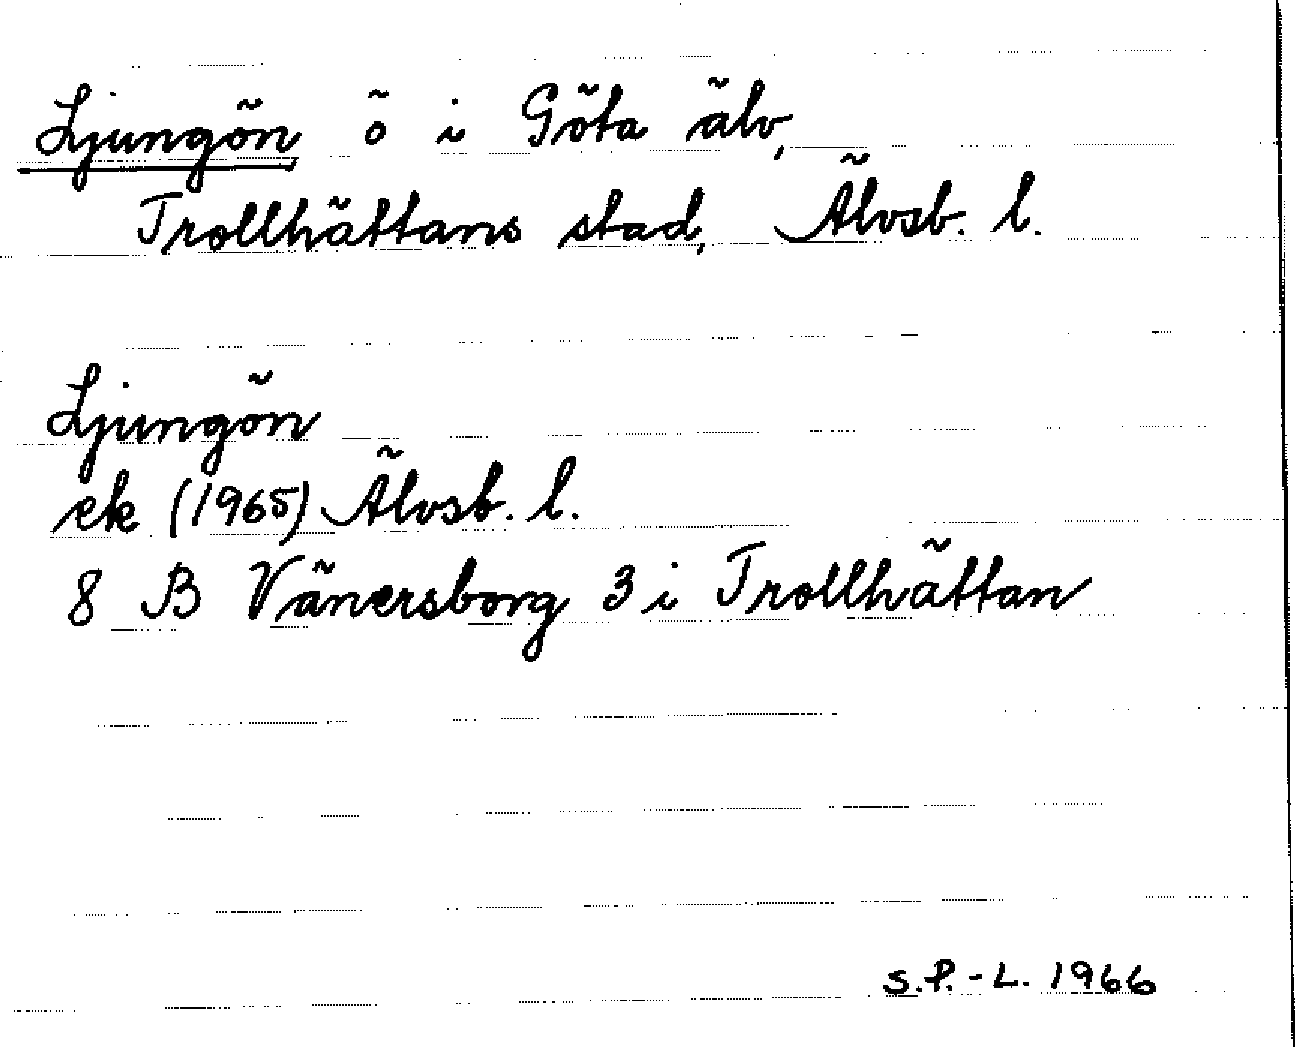 Ljungön ö i Göta älv,
Trollhättans stad, Älvsb. l.
Ljungön
ek (1965) Älvsb. l.
8 B Vänersborg 3 i Trollhättan
S.P.-L. 1966